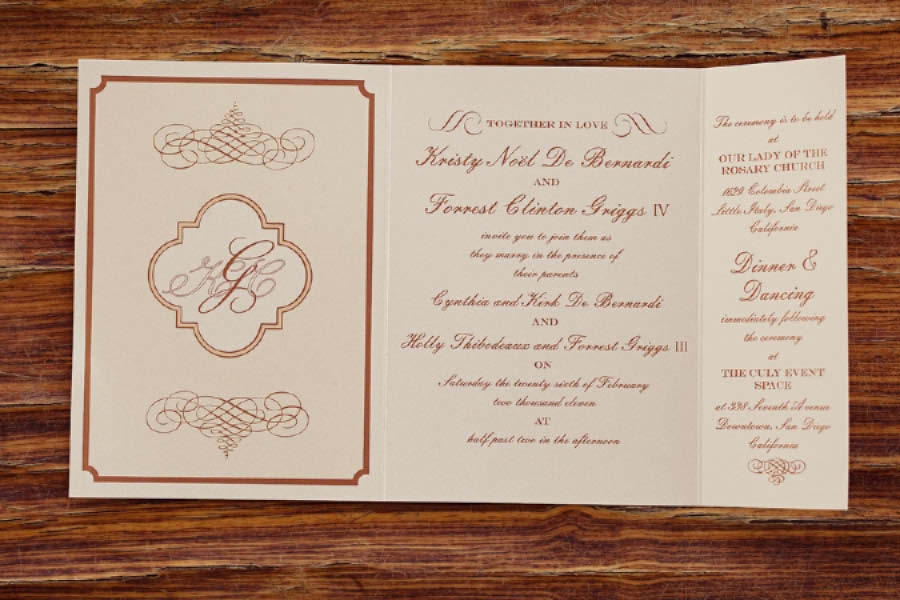 KGC
TOGETHER IN LOVE
Kristy Noël De Bernardi
AND
Forrest Clinton Griggs IV
invite you to join them as
they marry in the presence of
their parents
Cynthia and Kirk De Bernardi
AND
Holly Thibodeaux and Forrest Griggs III
ON
Saturday the twenty sixth of February
two thousand eleven
AT
half past two in the afternoon
The ceremony is to be held
at
OUR LADY OF THE
ROSARY CHURCH
1629 Columbia Street
Little Italy, San Diego
California
Dinner &
Dancing
immediately following
the ceremony
at
THE CULY EVENT
SPACE
at 338 Seventh Avenue
Downtown, San Diego
California